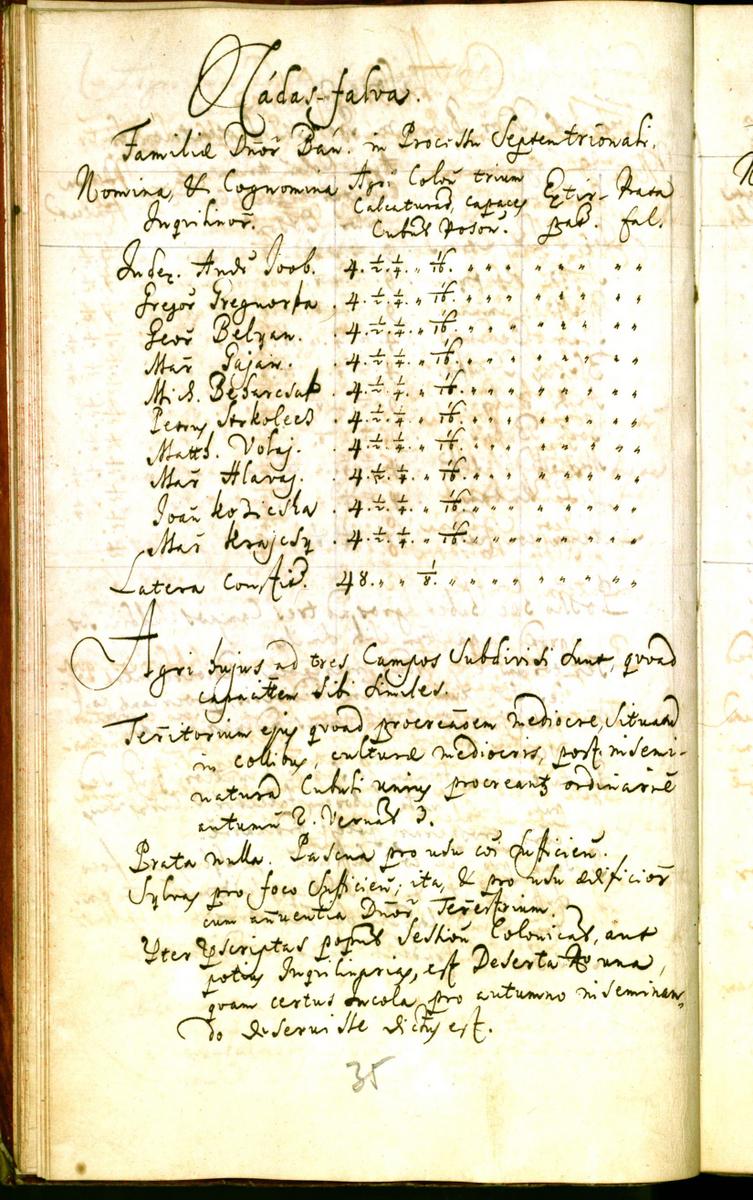 Nádas-falva.
Familiæ Dnor̃ Bán. in Processu Septentrionali.
Nomina, & Cognomina Inquilinor̃. Agri Colon̄ trium Calcaturar̄, capaces Cubul̄ Poson̄. Extir- pat. Prata fal.
Judex. Andr̃ Joob. 4. 1/2. 1/4. " 1/16. " " " " " " " "
Gregor̃ Greguorka. 4. 1/2. 1/4. " 1/16. " " " " " " " "
Geor̃ Belyan. 4. 1/2. 1/4. " 1/16. " " " " " " " "
Mar̃ Gajan. 4. 1/2. 1/4. " 1/16. " " " " " " " "
Mich. 4. 1/2. 1/4. " 1/16. " " " " " " " "
Petrus 4. 1/2. 1/4. " 1/16. " " " " " " " "
Matth. Volaj. 4. 1/2. 1/4. " 1/16. " " " " " " " "
Mar̃ Hlavaj. 4. 1/2. 1/4. " 1/16. " " " " " " " "
Joan̄ Kozicska. 4. 1/2. 1/4. " 1/16. " " " " " " " "
Mar̃ Krajcsy. 4. 1/2. 1/4. " 1/16. " " " " " " " "
Latera 48. " " 1/8. " " " " " " " " "
Agri hujus ad tres Campos Subdivisi sunt, quoad
capacitt̄em sibi similes.
Ter̃itorium ejus quoad procreãoem mediocre, situatū
in collibus, culturæ mediocris, post insemi-
naturā Cubuli unius procreantỹ ordinariè
autumn̄ 2. Vernal̄ 3.
Prata nulla. Pascua pro usu cõi sufficien̄.
Sylvas pro foco sufficien̄; ita, & pro usu ædificior̃
cum añuentia Dnor̃ Ter̃estrium.
Inter Sessiōn Colonicas, aut
potius Inquilinarias, est Deserta una,
quam certus incola pro autumno inseminan-
do deseruisse dictus est.
35